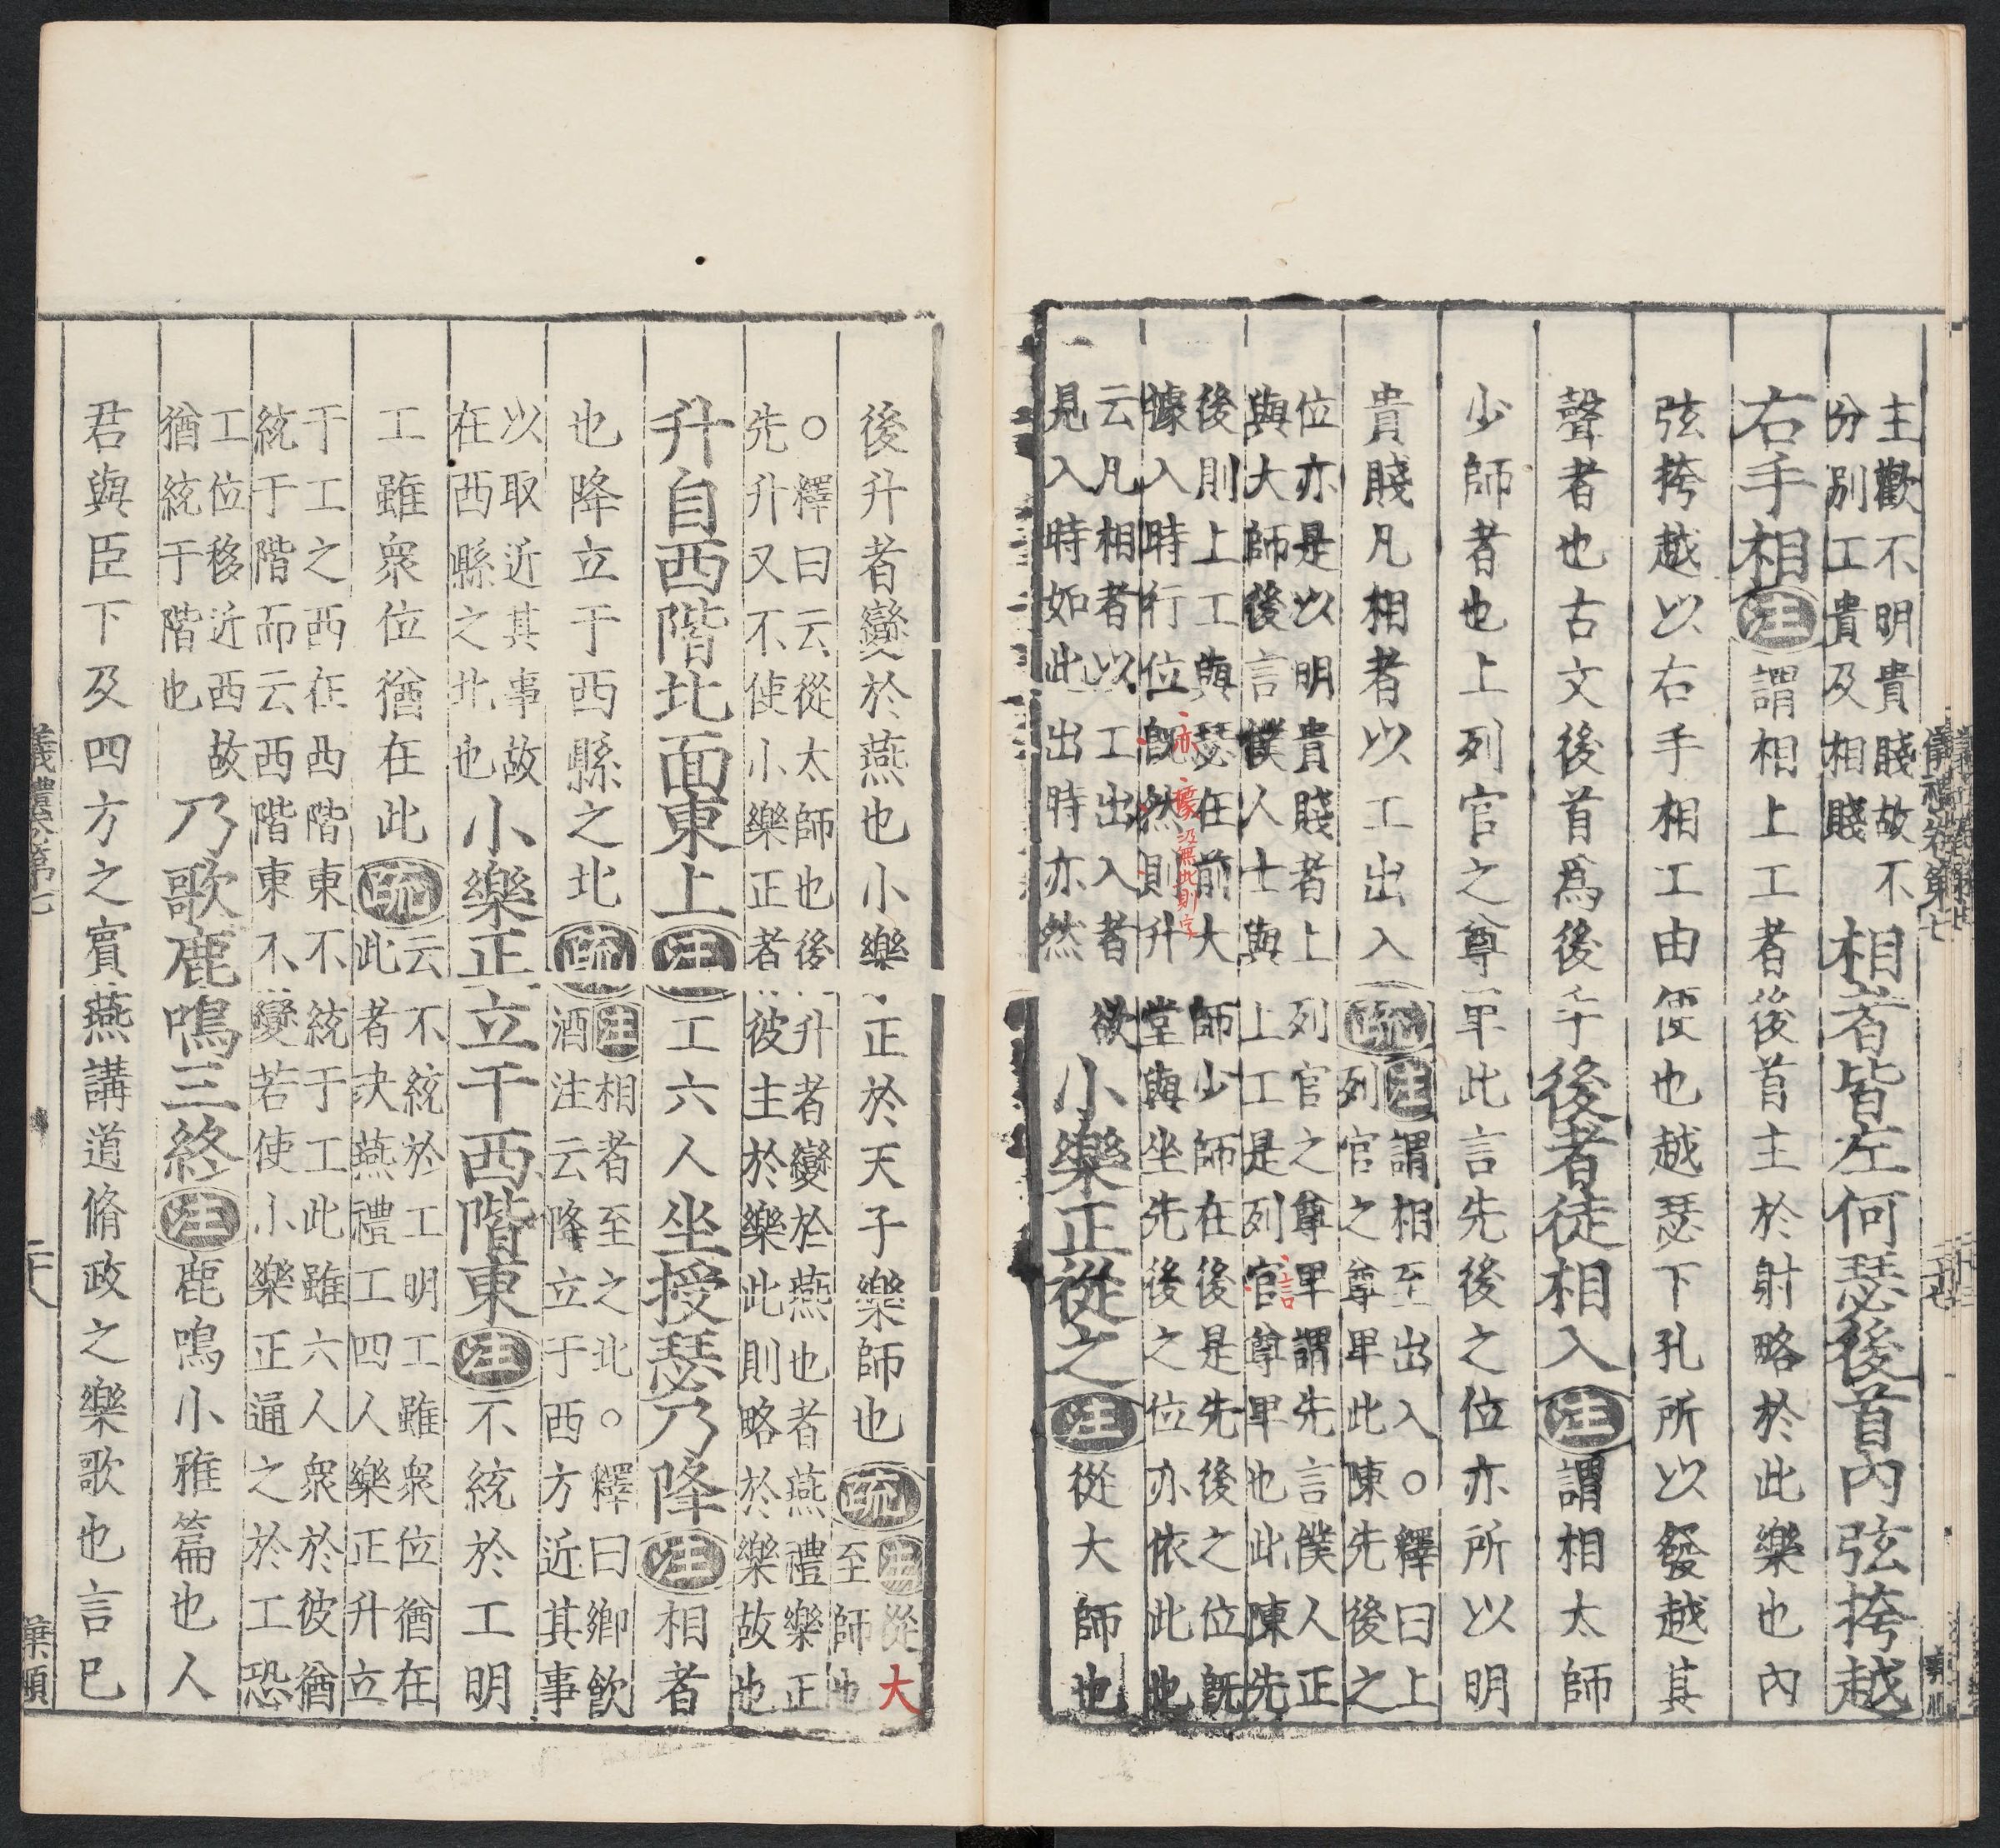 主歡不明貴賤故不
分別工貴及相賤
相者皆左何瑟後首內弦挎越
右手相注謂相上工者後首主於射略於此樂也內
弦挎越以右手相工由便也越瑟下孔所以發越其
聲者也古文後首爲後手後者徒相入注謂相太師
少師者也上列官之尊卑此言先後之位亦所以明
貴賤凡相者以工出入疏
注謂相至出入○釋曰上
列官之尊卑此陳先後之
位亦是以明貴賤者上列官之尊卑謂先言僕人正
言
與大師後言僕人士與上工是列官尊卑也此陳先
後則上工與瑟在前大師少師在後是先後之位既
亦據
無此則字
據入時行位既然則升堂與坐先後之位亦依此也
云凡相者以工出入者欲
見入時如此出時亦然
小樂正從之注從大師也
後升者變於燕也小樂正於天子樂師也疏
注從大
至師也
○釋曰云從太師也後升者變於燕也者燕禮樂正
先升又不使小樂正者彼主於樂此則略於樂故也
升自西階北面東上注工六人坐授瑟乃降注相者
也降立于西縣之北疏
注相者至之北○釋曰鄉飲
酒注云降立于西方近其事
以取近其事故
在西縣之北也
小樂正立于西階東注不統於工明
工雖衆位猶在此疏
云不統於工明工雖衆位猶在
此者決燕禮工四人樂正升立
于工之西在西階東不統于工此雖六人衆於彼猶
統于階而云西階東不變若使小樂正通之於工恐
工位移近西故
猶統于階也
乃歌鹿鳴三終注鹿鳴小雅篇也人
君與臣下及四方之賓燕講道脩政之樂歌也言已
儀禮卷第七
葉順